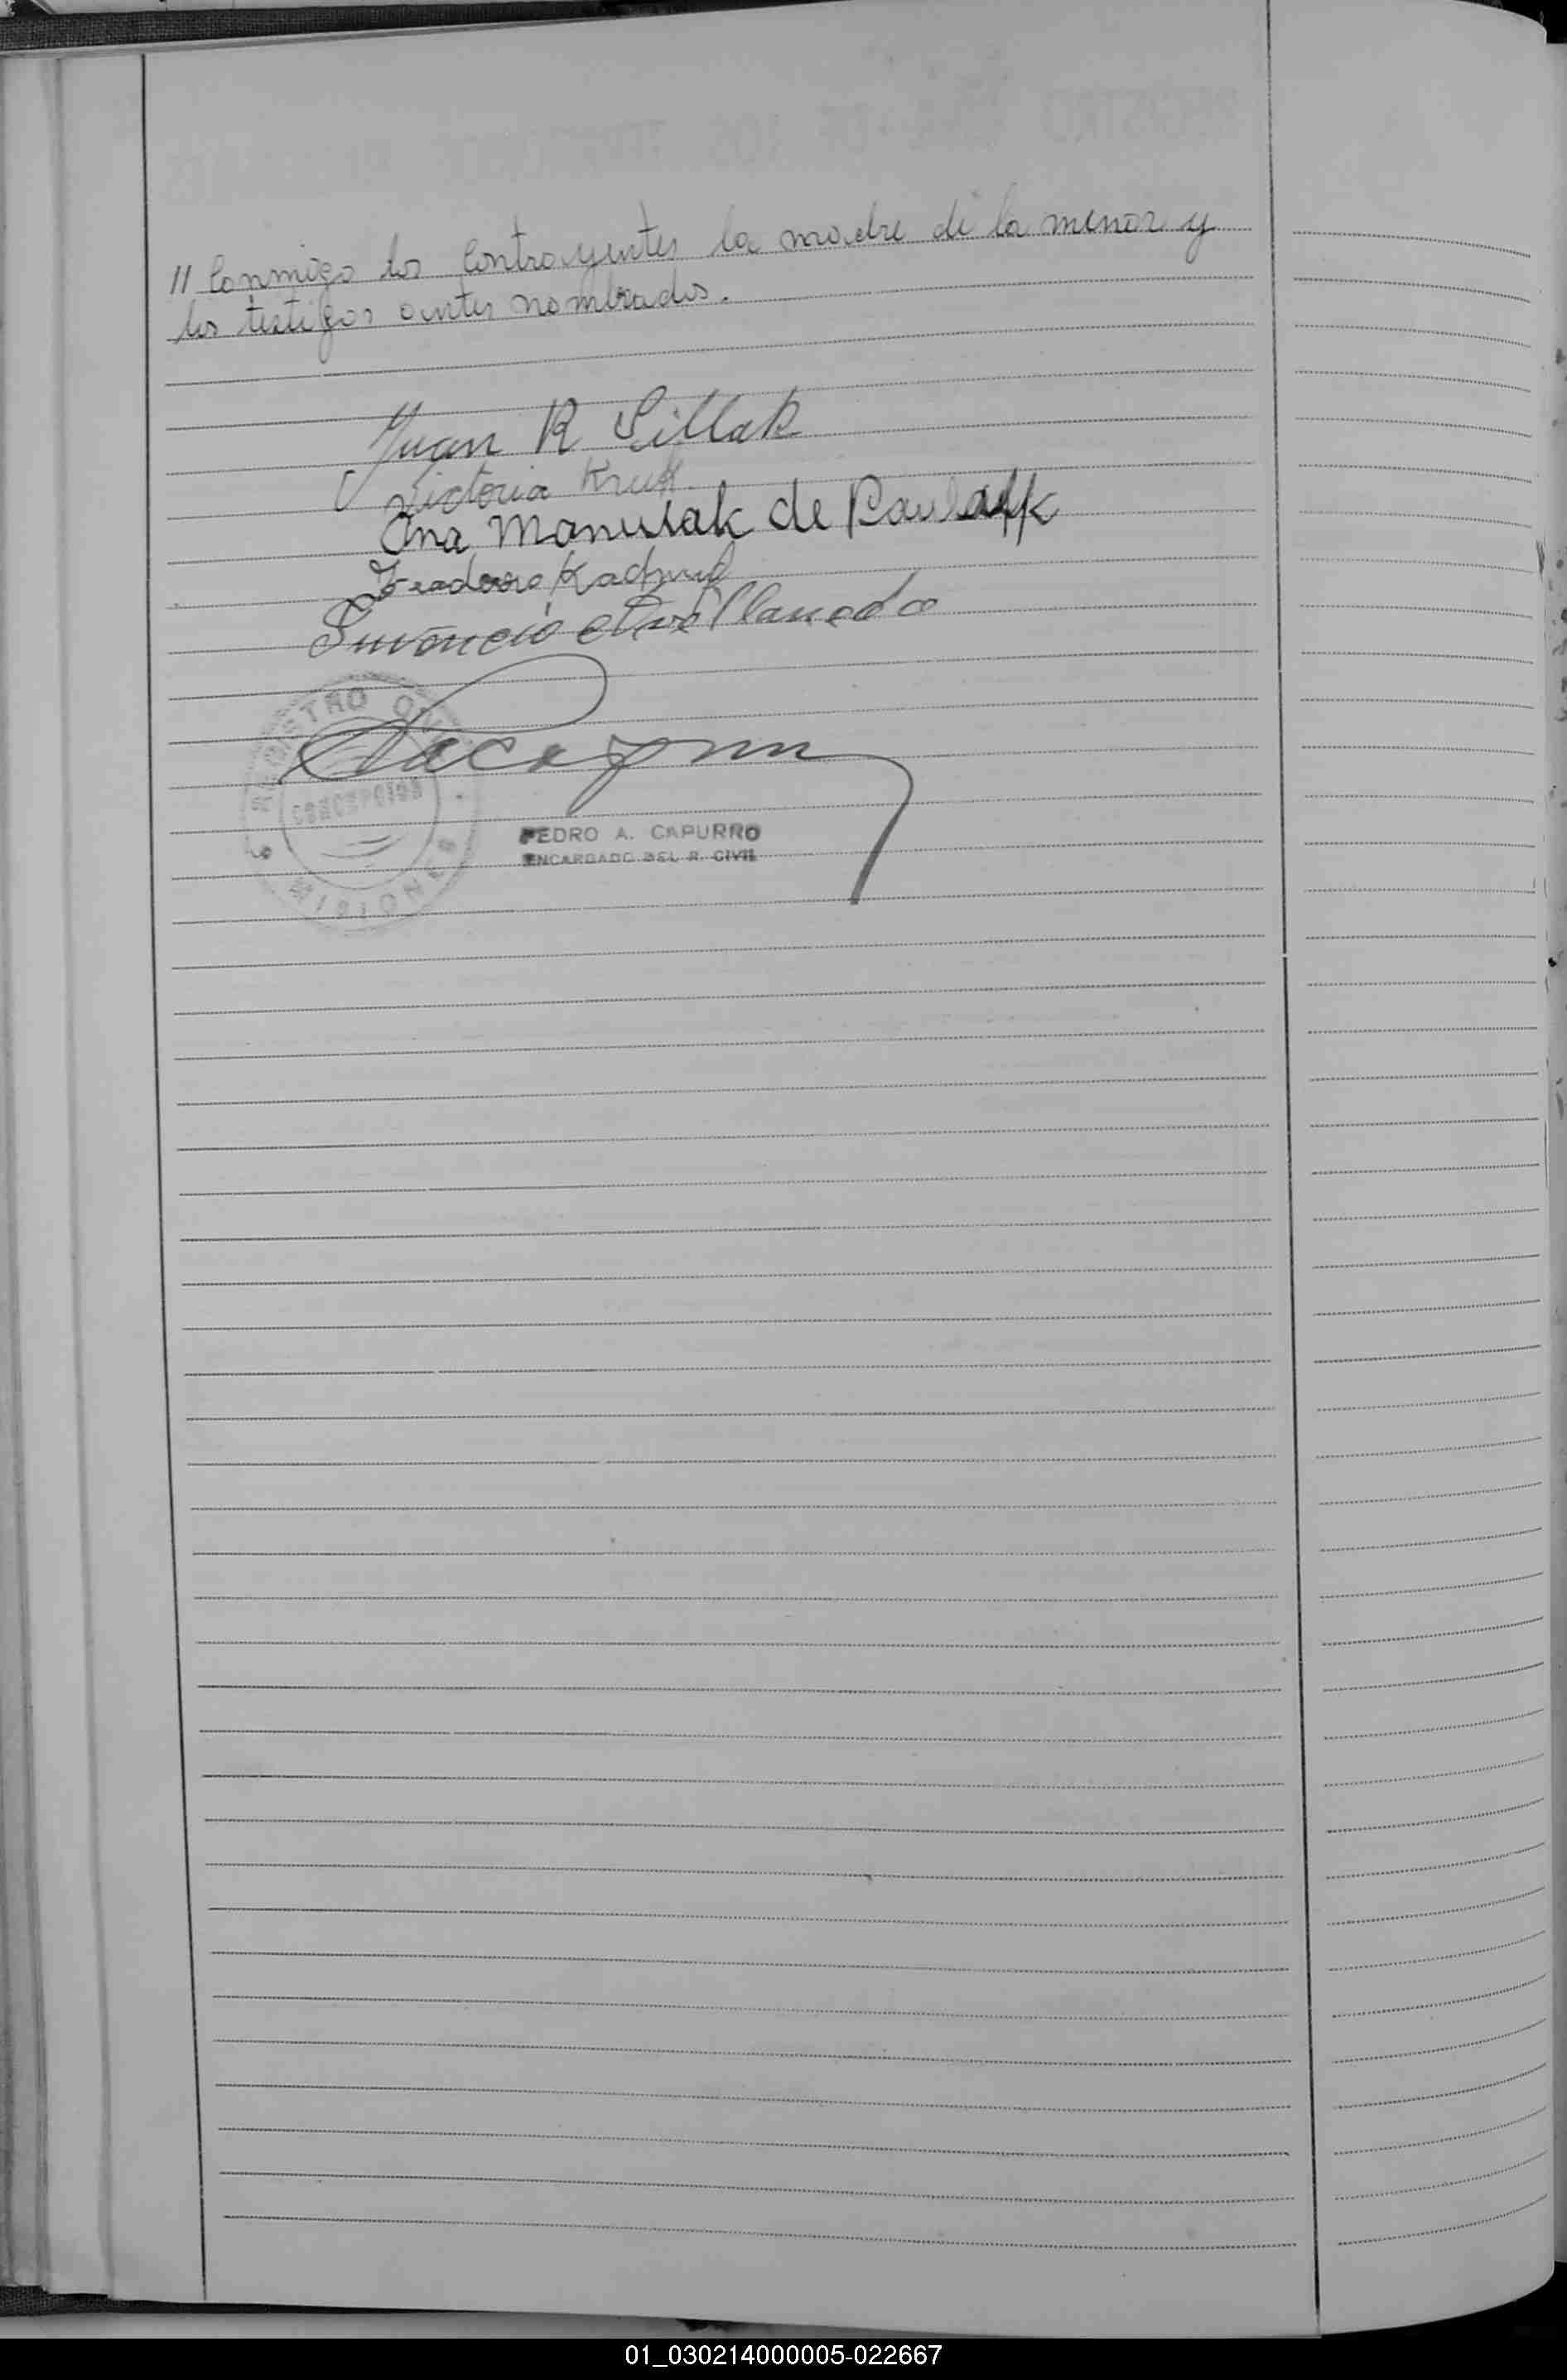 // Conmigo los Contrayentes la madre de la menor y
los testigos antes nombrados.
Juan R Sillak
Victoria Kruk
Ana Manulak de
Teadosio
Juvencio Avellaneda
REGISTRO CIVIL
CONCEPCION
MISIONES
PEDRO A. CAPURRO
ENCARGADO DEL R. CIVIL
01_030214000005-022667